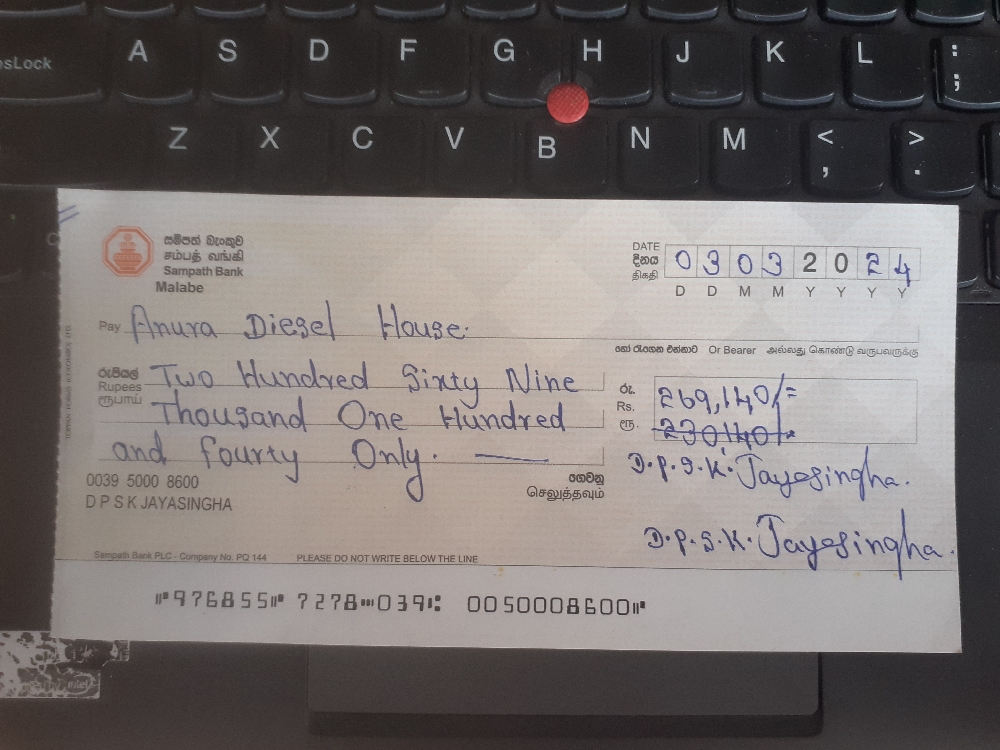 CapsLock A S D F G H J K L : ;
Z X C V B N M < , > .
සම්පත් බැංකුව
சம்பத் வங்கி
Sampath Bank
Malabe
DATE 0 3 0 3 2 0 2 4
දිනය
திகதி
D D M M Y Y Y Y
Pay Anura Diesel House.
හෝ රැගෙන එන්නාට Or Bearer அல்லது கொண்டு வருபவருக்கு
රුපියල් Two Hundred Sixty Nine
Rupees
ரூபாய் Thousand One Hundred
and fourty Only.
රු. 269,140/=
Rs.
ரூ. 230140/=
D.P.S.K. Jayasingha.
0039 5000 8600
D P S K JAYASINGHA
ගෙවනු
செலுத்தவும்
D.P.S.K. Jayasingha.
Sampath Bank PLC - Company No. PQ 144 PLEASE DO NOT WRITE BELOW THE LINE
⑈976855⑈ 7278⑉039⑆ 0050008600⑈